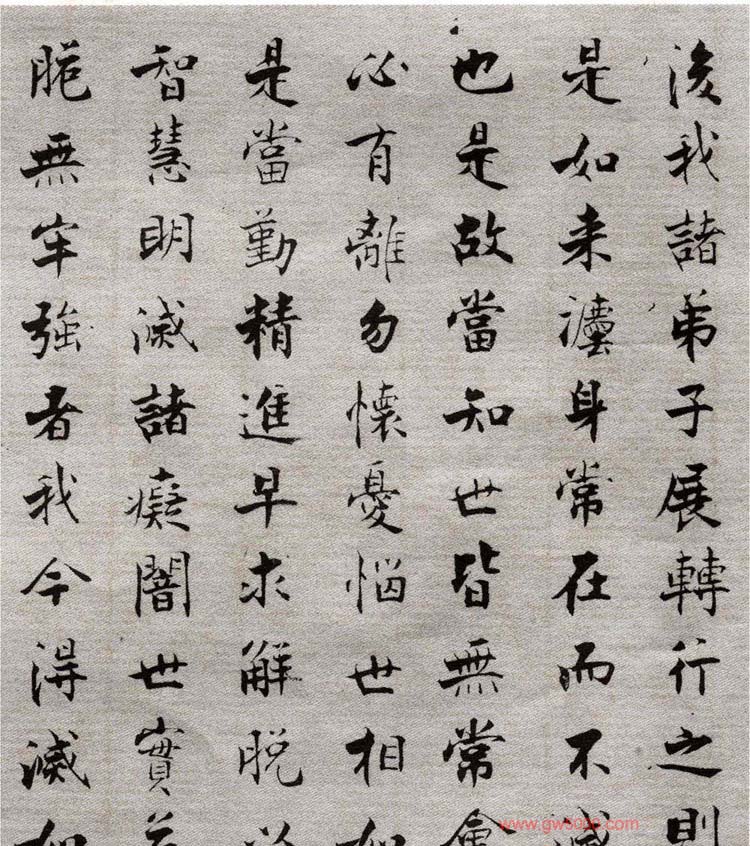 後我諸弟子展轉行之則
是如来灋身常在而不滅
也是故當知世皆無常會
必有離勿懷憂惱世相如
是當勤精進早求解脱以
智慧明滅諸癡闇世實危
脆無牢強者我今得滅如
www.gw5000.com